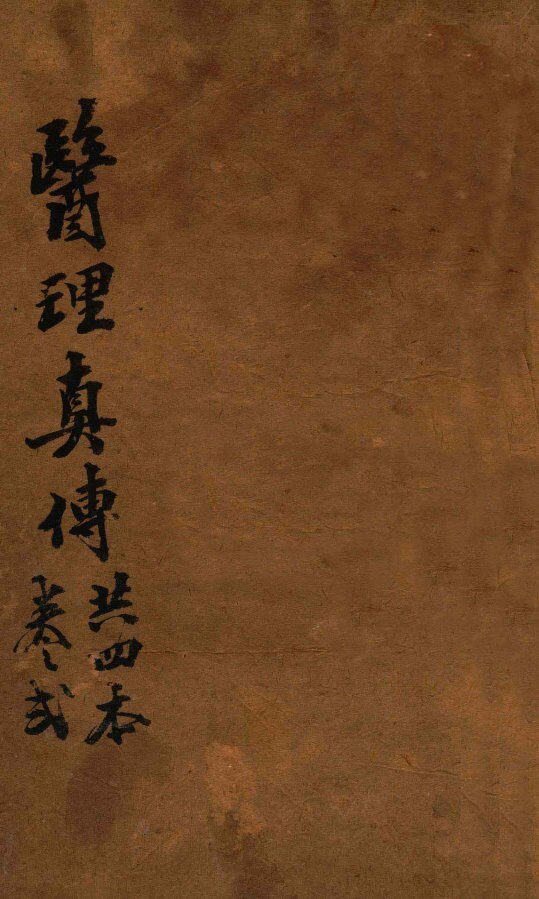 醫理真傳
共四本
卷弍